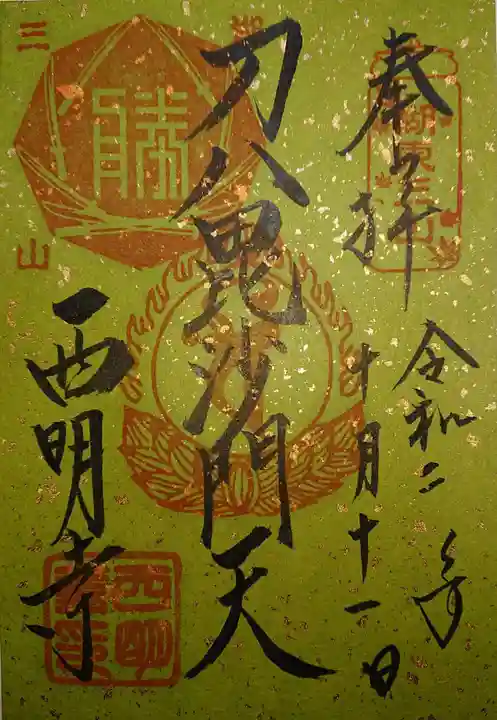 奉拝
令和二年
十月十一日
刀八毘沙門天
西明寺
勝
三
山
西明